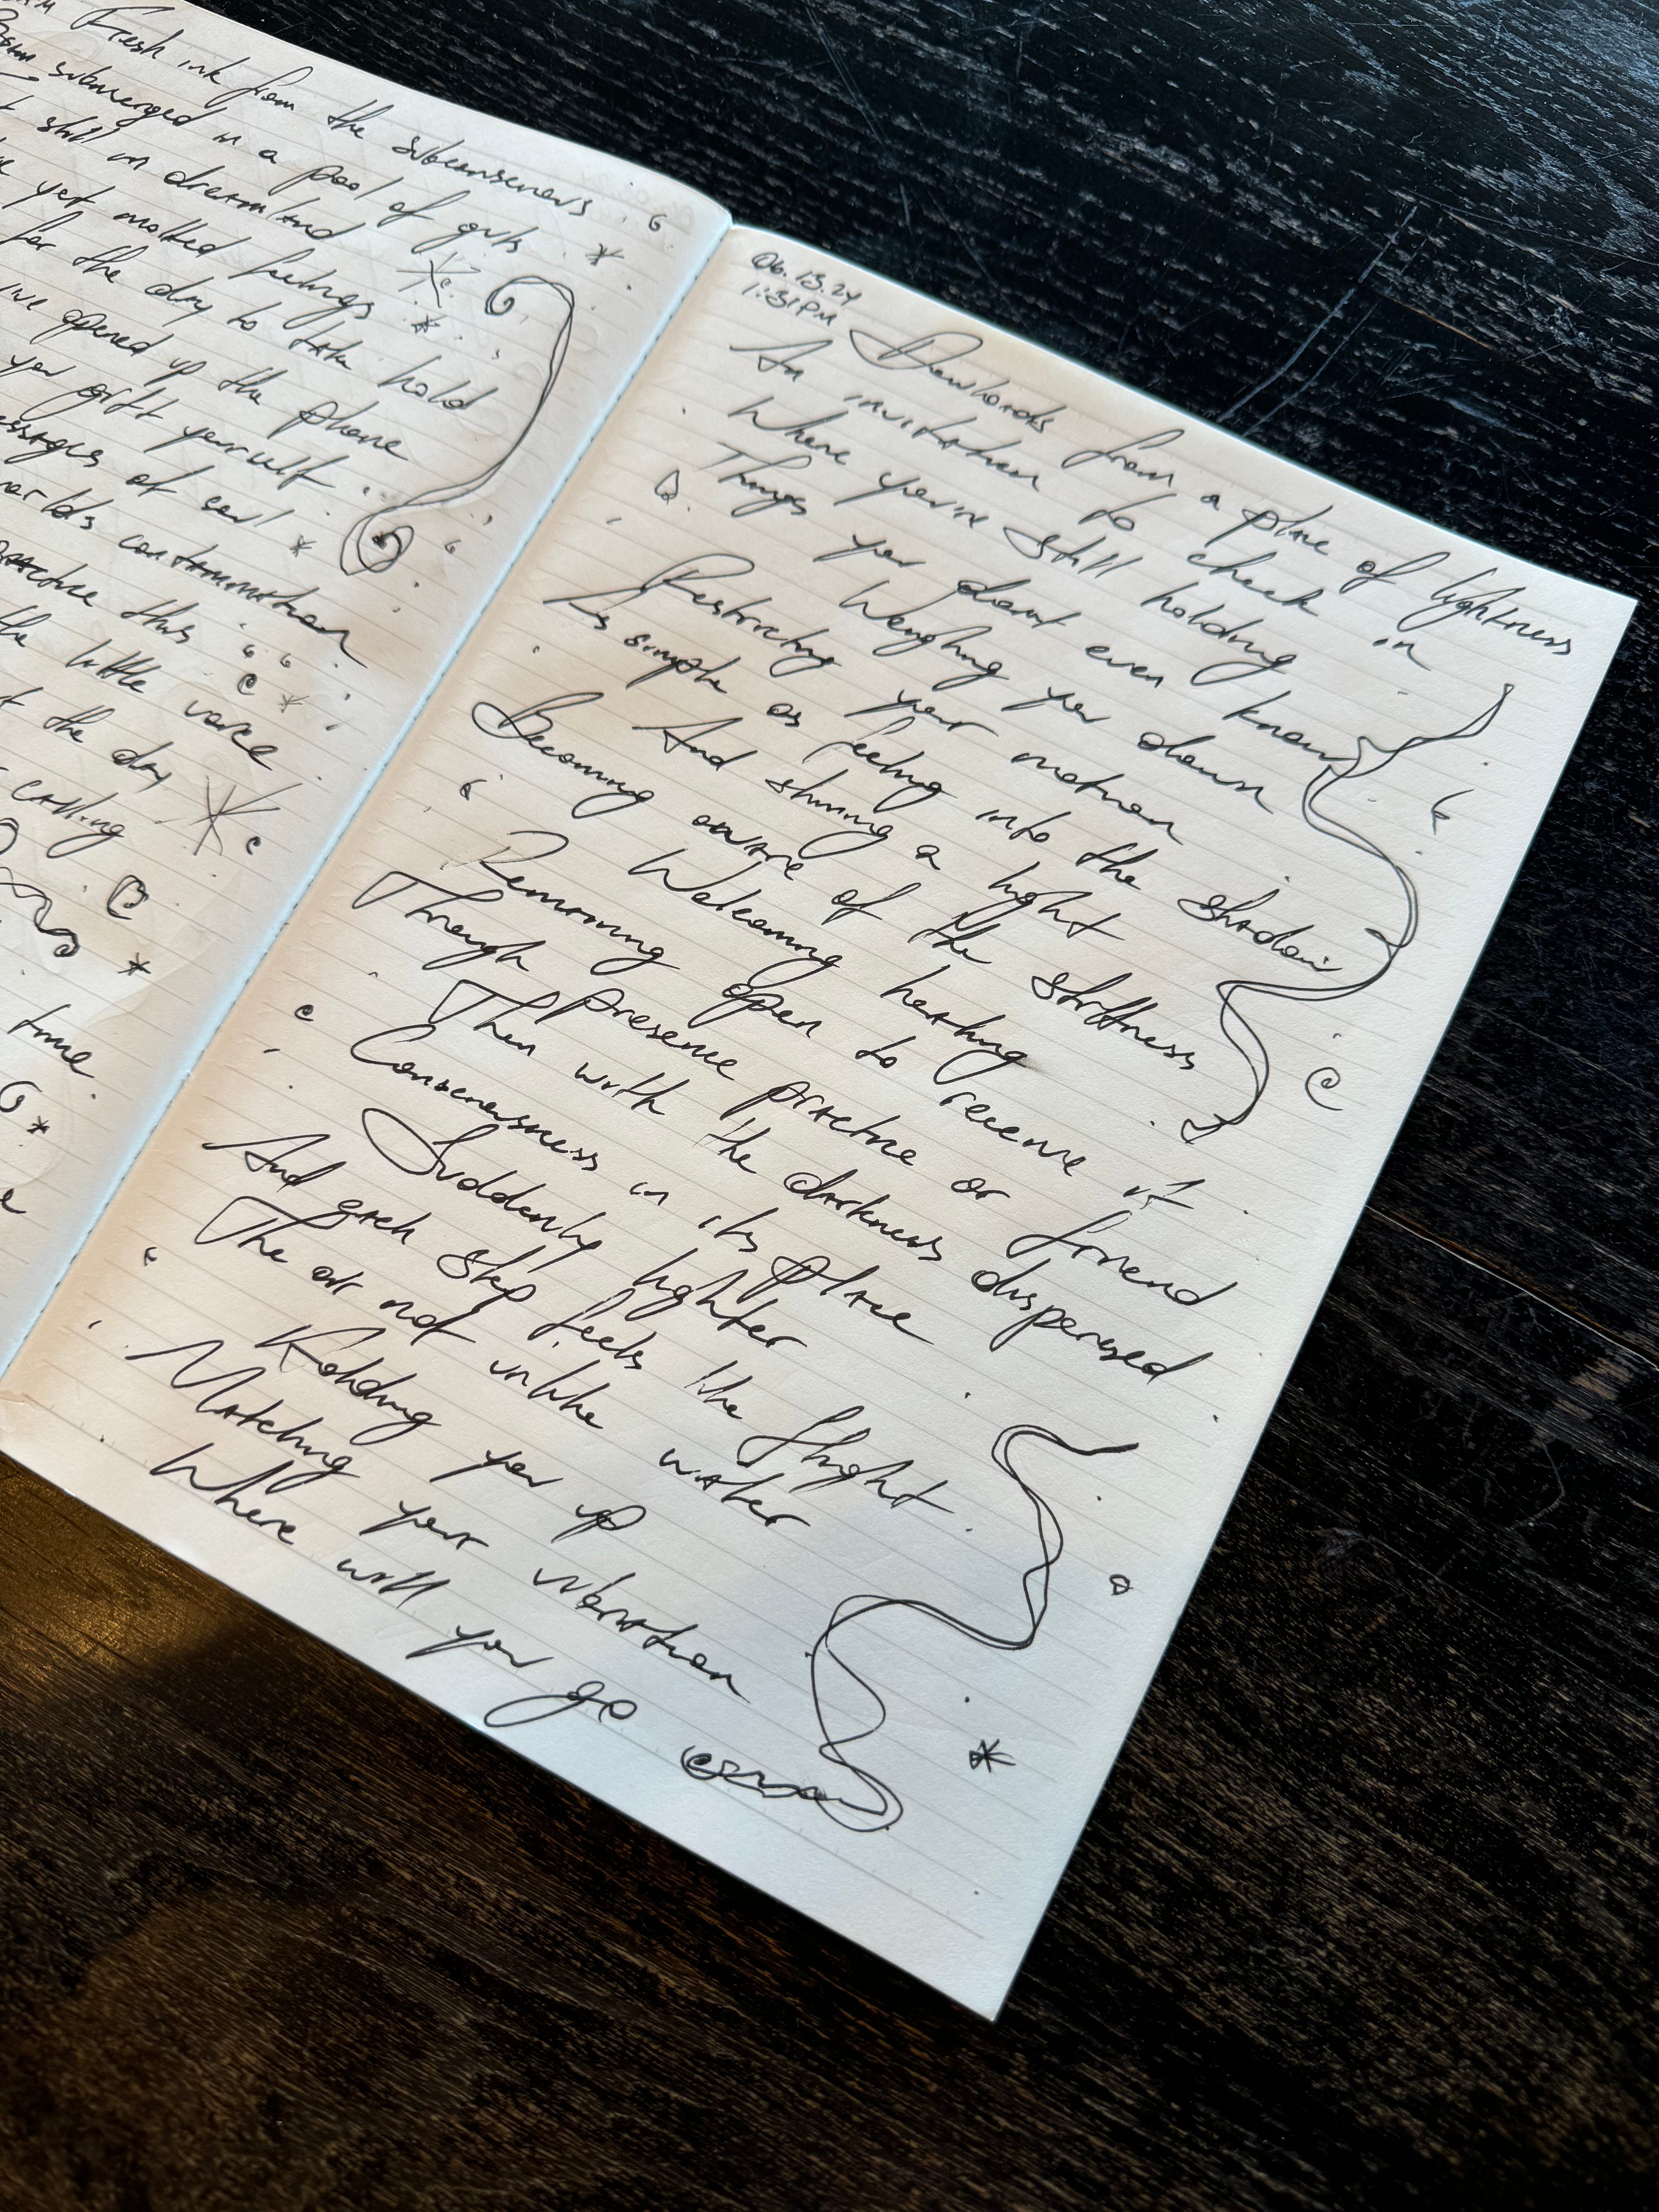 Fresh ink from the subconscious
submerged in a pool of guts
still in dreamland
yet molted feelings
for the day to take hold
opened up the phone
you gift yourself
of soul
worlds contamination
practice this
the little voice
the day
calling
time
06.13.24
1:31PM
Downloads from a place of lightness
An invitation to check in
Where you're still holding
Things you dont even know
Weighing you down
Restricting your motion
As simple as feeling into the shadow
And shining a light
Becoming aware of the stiffness
Welcoming healing
Remaining open to receive it
Through presence practice or friend
Then with the darkness dispersed
Consciousness in its place
Suddenly lighter
And each step feels like flight
The air not unlike water
Holding you up
Matching your vibration
Where will you go